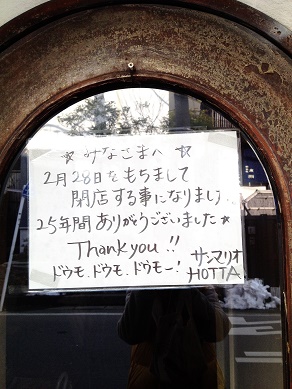 ☆ みなさまへ ☆
2月28日をもちまして
閉店する事になりまし
25年間ありがとうございました☆
Thank you !!
ドウモ、ドウモ、ドウモー！
サンマリオ
HOTTA